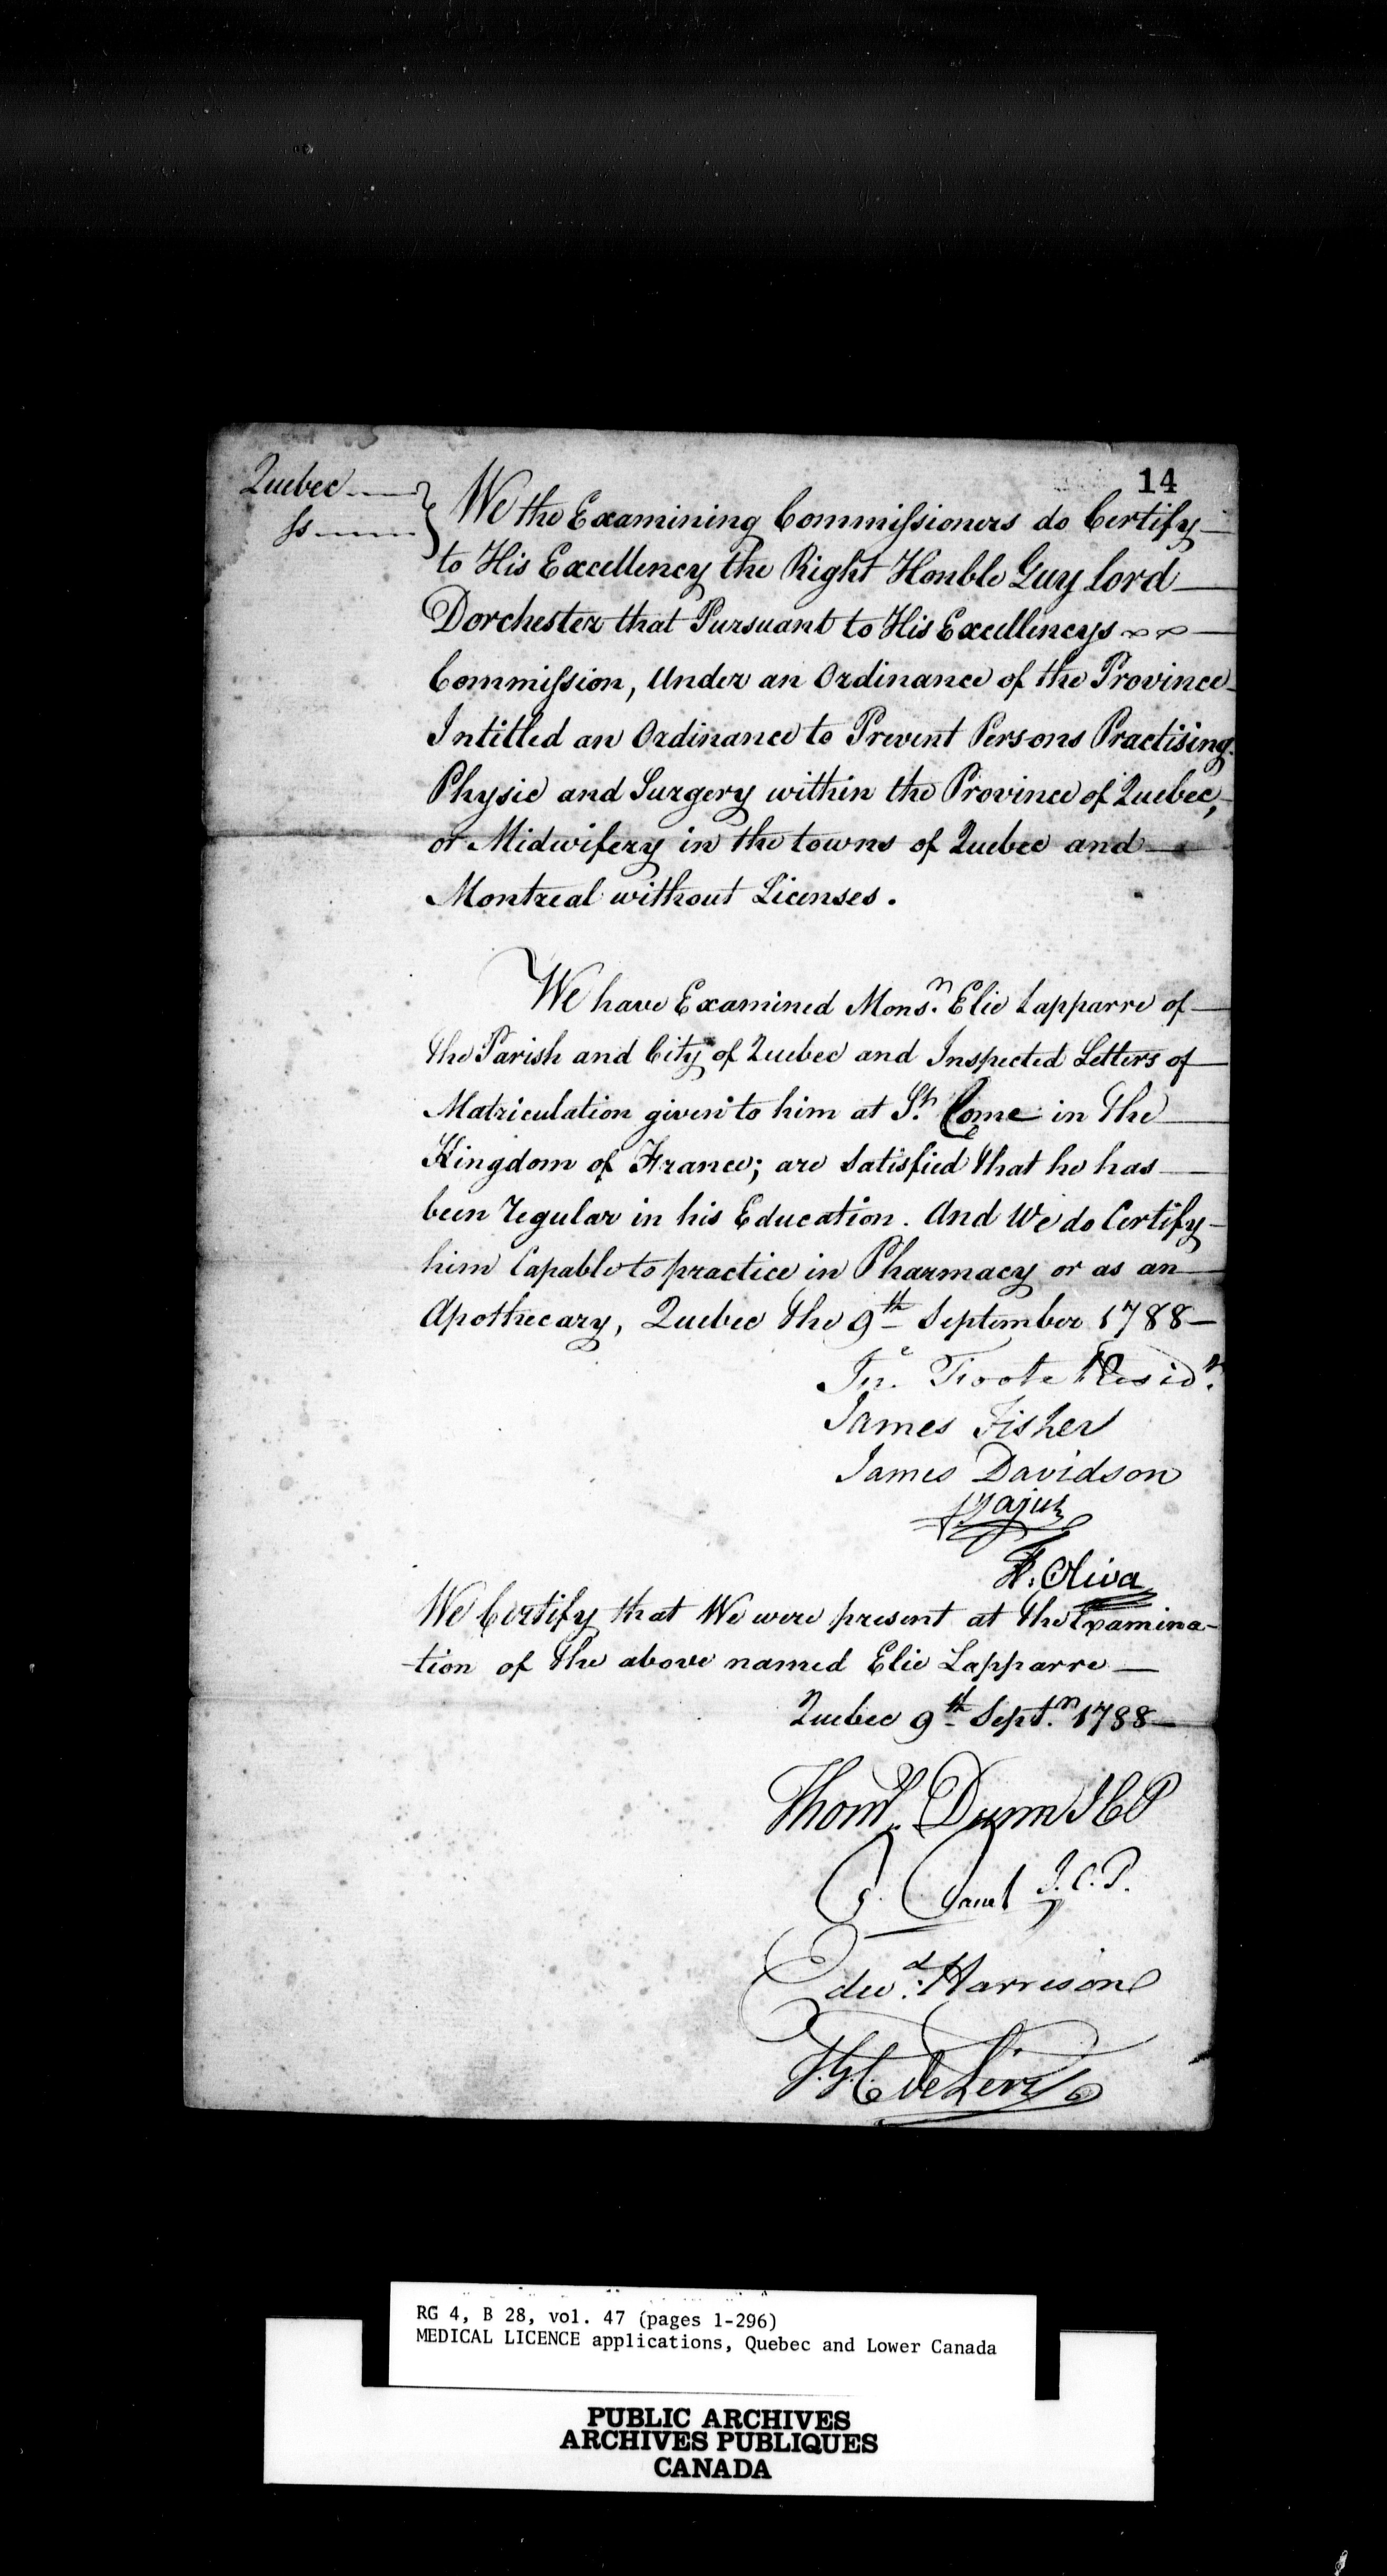 14
Quebec
ss
We the Examining Commissioners do Certify
to His Excellency the Right Honble Guy lord
Dorchester that Pursuant to His Excellencys
Commission, Under an Ordinance of the Province
Intitled an Ordinance to Prevent Persons Practising
Physic and Surgery within the Province of Quebec,
or Midwifery in the towns of Quebec and
Montreal without Licenses.
We have Examined Monsr. Elie Lapparre of
the Parish and City of Quebec and Inspected Letters of
Matriculation given to him at St. Come in the
Kingdom of France; are Satisfied that he has
been regular in his Education. And We do Certify
him Capable to practice in Pharmacy or as an
Apothecary, Quebec the 9th September 1788
Foote
James Fisher
James Davidson
F. Oliva
We Certify that We were present at the Examina-
-tion of the above named Elie Lapparre
Quebec 9th Septr. 1788
Thoms. Dunn JCP
J.C.P.
Edwd. Harrison
De Lery
RG 4, B 28, vol. 47 (pages 1-296)
MEDICAL LICENCE applications, Quebec and Lower Canada
PUBLIC ARCHIVES
ARCHIVES PUBLIQUES
CANADA